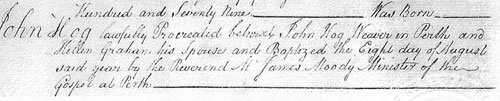 Hundred and Seventy Nine Was Born
John Hog lawfully Procreated betwixt John Hog Weaver in Perth and
Hellen Graham his Spouse and Baptized the Eight day of August
said year by the Reverend Mr. James Moody Minister of the
Gospel at Perth